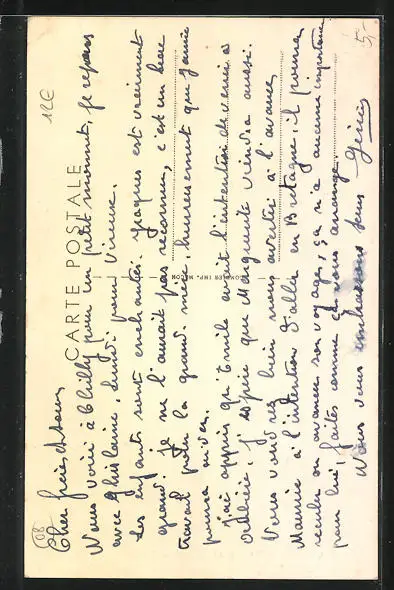 CARTE POSTALE
COMBIER IMP. MACON
12€
5,-
08
Cher frère et sœur
Nous voici à Chilly pour un petit moment, je repars
avec Ghislaine, lundi pour Vienne.
Les enfants sont enchantés. Jacques est vraiment
grand je ne l'aurait pas reconnu, c'est un beau
travail pour la grand-mie, heureusement que Ginie
pourra aider.
J'ai appris qu'Emile avait l'intention de venir à
j'espère que Marguerite viendra aussi.
Vous voudrez bien nous avertir à l'avance
Maurice à l'intention d'aller en Bretagne, il pourra
reculer ou avancer son voyage, ça n'a aucune importance
pour lui, faites comme ça vous arrange.
Nous vous embrassons tous